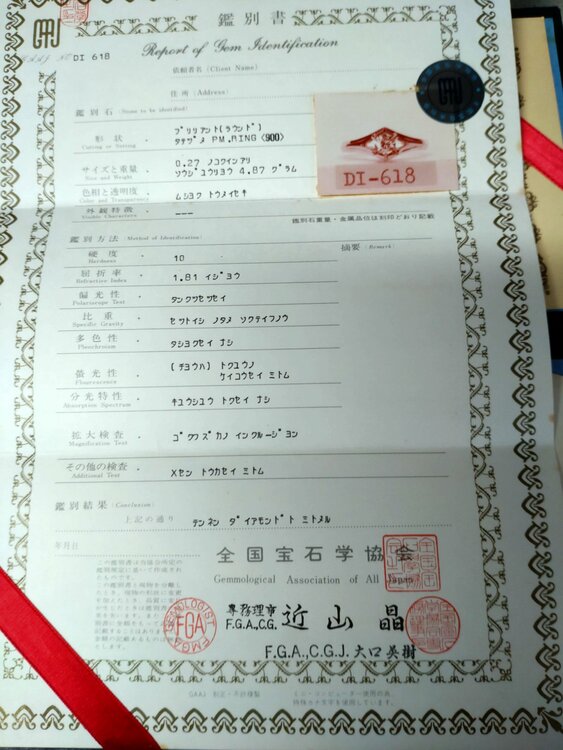 鑑別書
Report of Gem Identification
DI 618
依頼者名 (Client Name)
住所 (Address)
鑑別石 (Stone to be identified)
形状 ・ ブリリアント(ラウンド)
Cutting or Setting タテヅメ PM.RING <900>
サイズと重量 ・ 0.27 ノコクインアリ
Size and Weight ソウジュウリョウ 4.87 グラム
色相と透明度 ・ ムショク トウメイセキ
Color and Transparency
外観特徴 ・ ---
Visible Characters
DI-618
鑑別石重量・金属品位は刻印どおり記載
鑑別方法 (Method of Identification)
摘要 (Remark)
硬度 ・ 10
Hardness
屈折率 ・ 1.81 イジョウ
Refractive Index
偏光性 ・ タンクツセツセイ
Polariscope Test
比重 ・ セツトイシ ノタメ ソクテイフノウ
Specific Gravity
多色性 ・ タショクセイ ナシ
Pleochroism
螢光性 ・ (チョウハ) トクユウノ
Fluorescence ケイコウセイ ミトム
分光特性 ・ キュウシュウ トクセイ ナシ
Absorption Spectrum
拡大検査 ・ ゴクワズカノ インクルージョン
Magnification Test
その他の検査 ・ Xセン トウカセイ ミトム
Additional Test
鑑別結果 (Conclusion)
上記の通り テンネン ダイアモンドト ミトメル
年月日
この鑑別書は当協会所定の
鑑別規定に基いて作成され
たものです。
全国宝石学協会
Gemmological Association of All Japan
専務理事
F.G.A.,C.G. 近山晶
F.G.A.,C.G.J. 大口英樹
FGA
GAAJ 制定・不許複製
ミニ・コンピューター使用の為、
特殊カナ文字を使用しています。